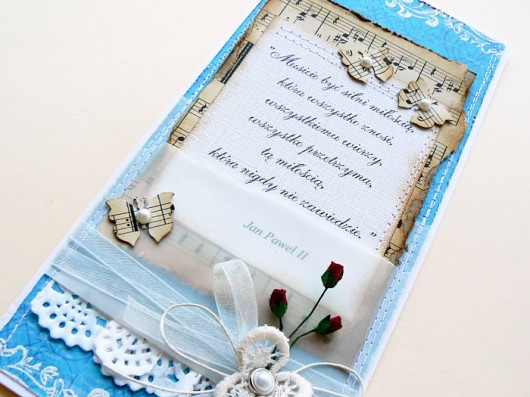 "Musicie być silni miłością,
która wszystko znosi,
wszystkiemu wierzy,
wszystko przetrzyma,
tą miłością,
która nigdy nie zawiedzie."
Jan Paweł II